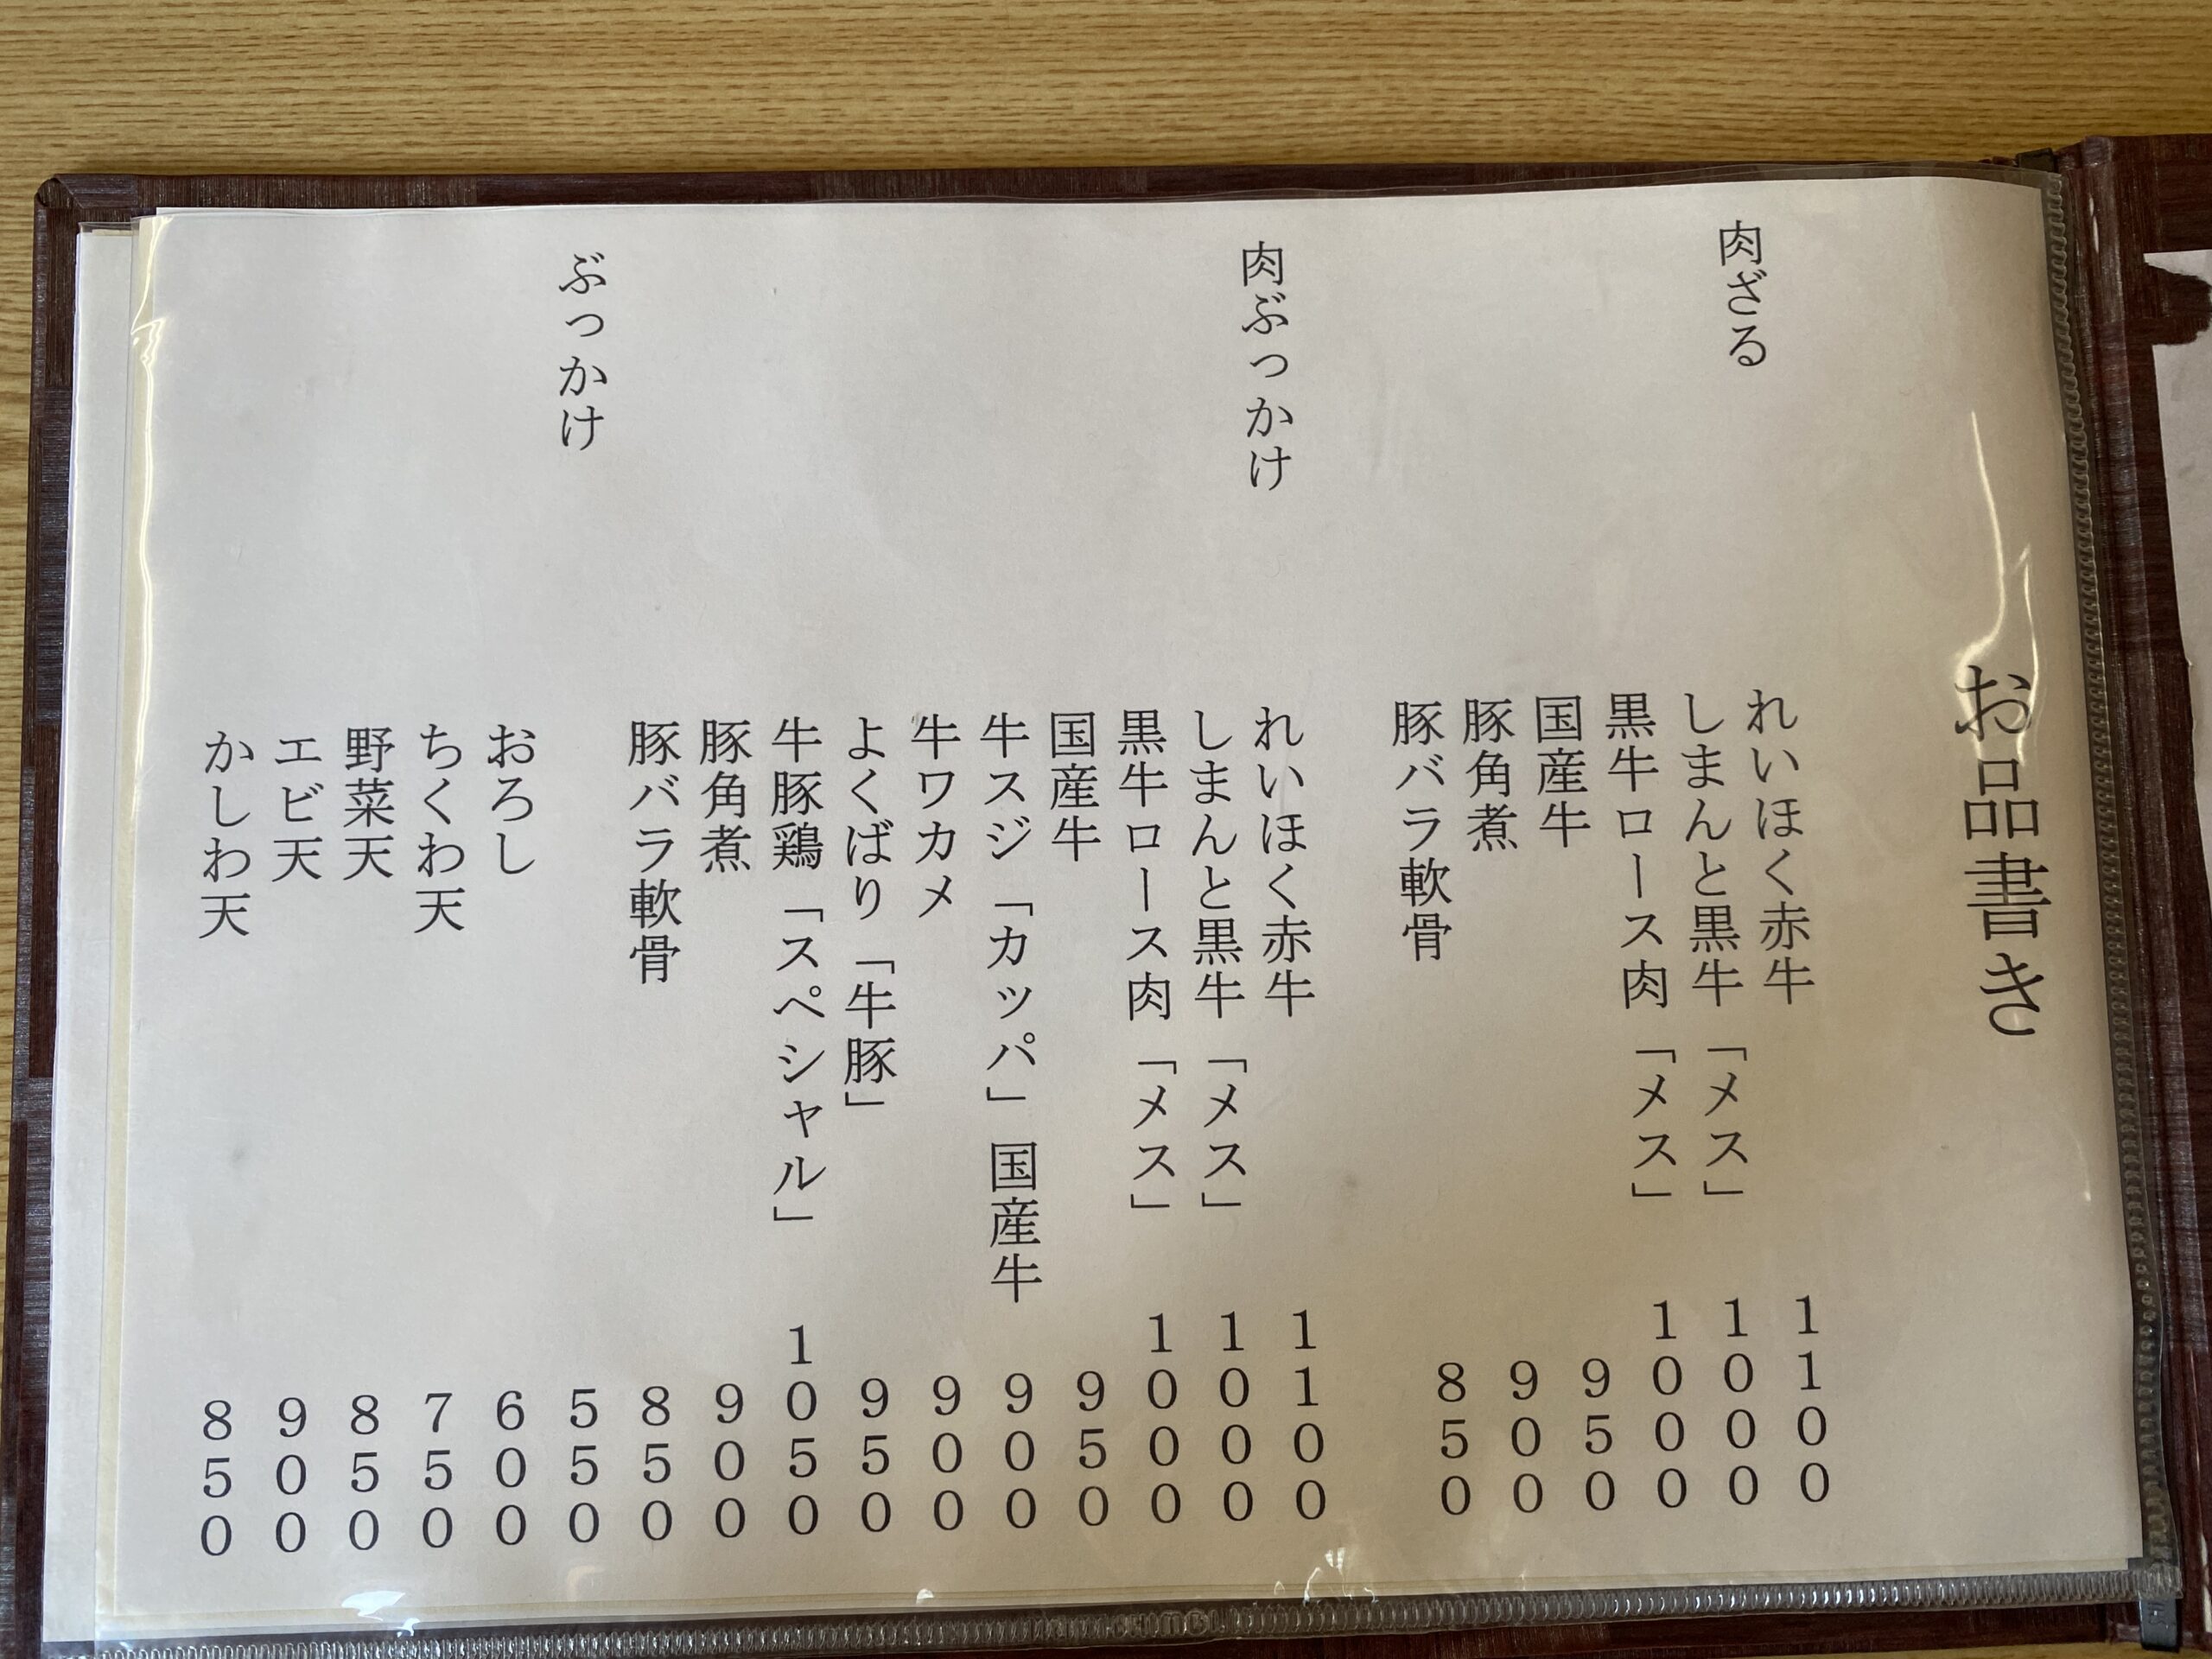 お品書き
肉ざる
れいほく赤牛 1100
しまんと黒牛「メス」 1000
黒牛ロース肉「メス」 1000
国産牛 950
豚角煮 900
豚バラ軟骨 850
肉ぶっかけ
れいほく赤牛 1100
しまんと黒牛「メス」 1000
黒牛ロース肉「メス」 1000
国産牛 950
牛スジ「カッパ」国産牛 900
牛ワカメ 900
よくばり「牛豚」 950
牛豚鶏「スペシャル」 1050
豚角煮 900
豚バラ軟骨 850
ぶっかけ 550
おろし 600
ちくわ天 750
野菜天 850
エビ天 900
かしわ天 850